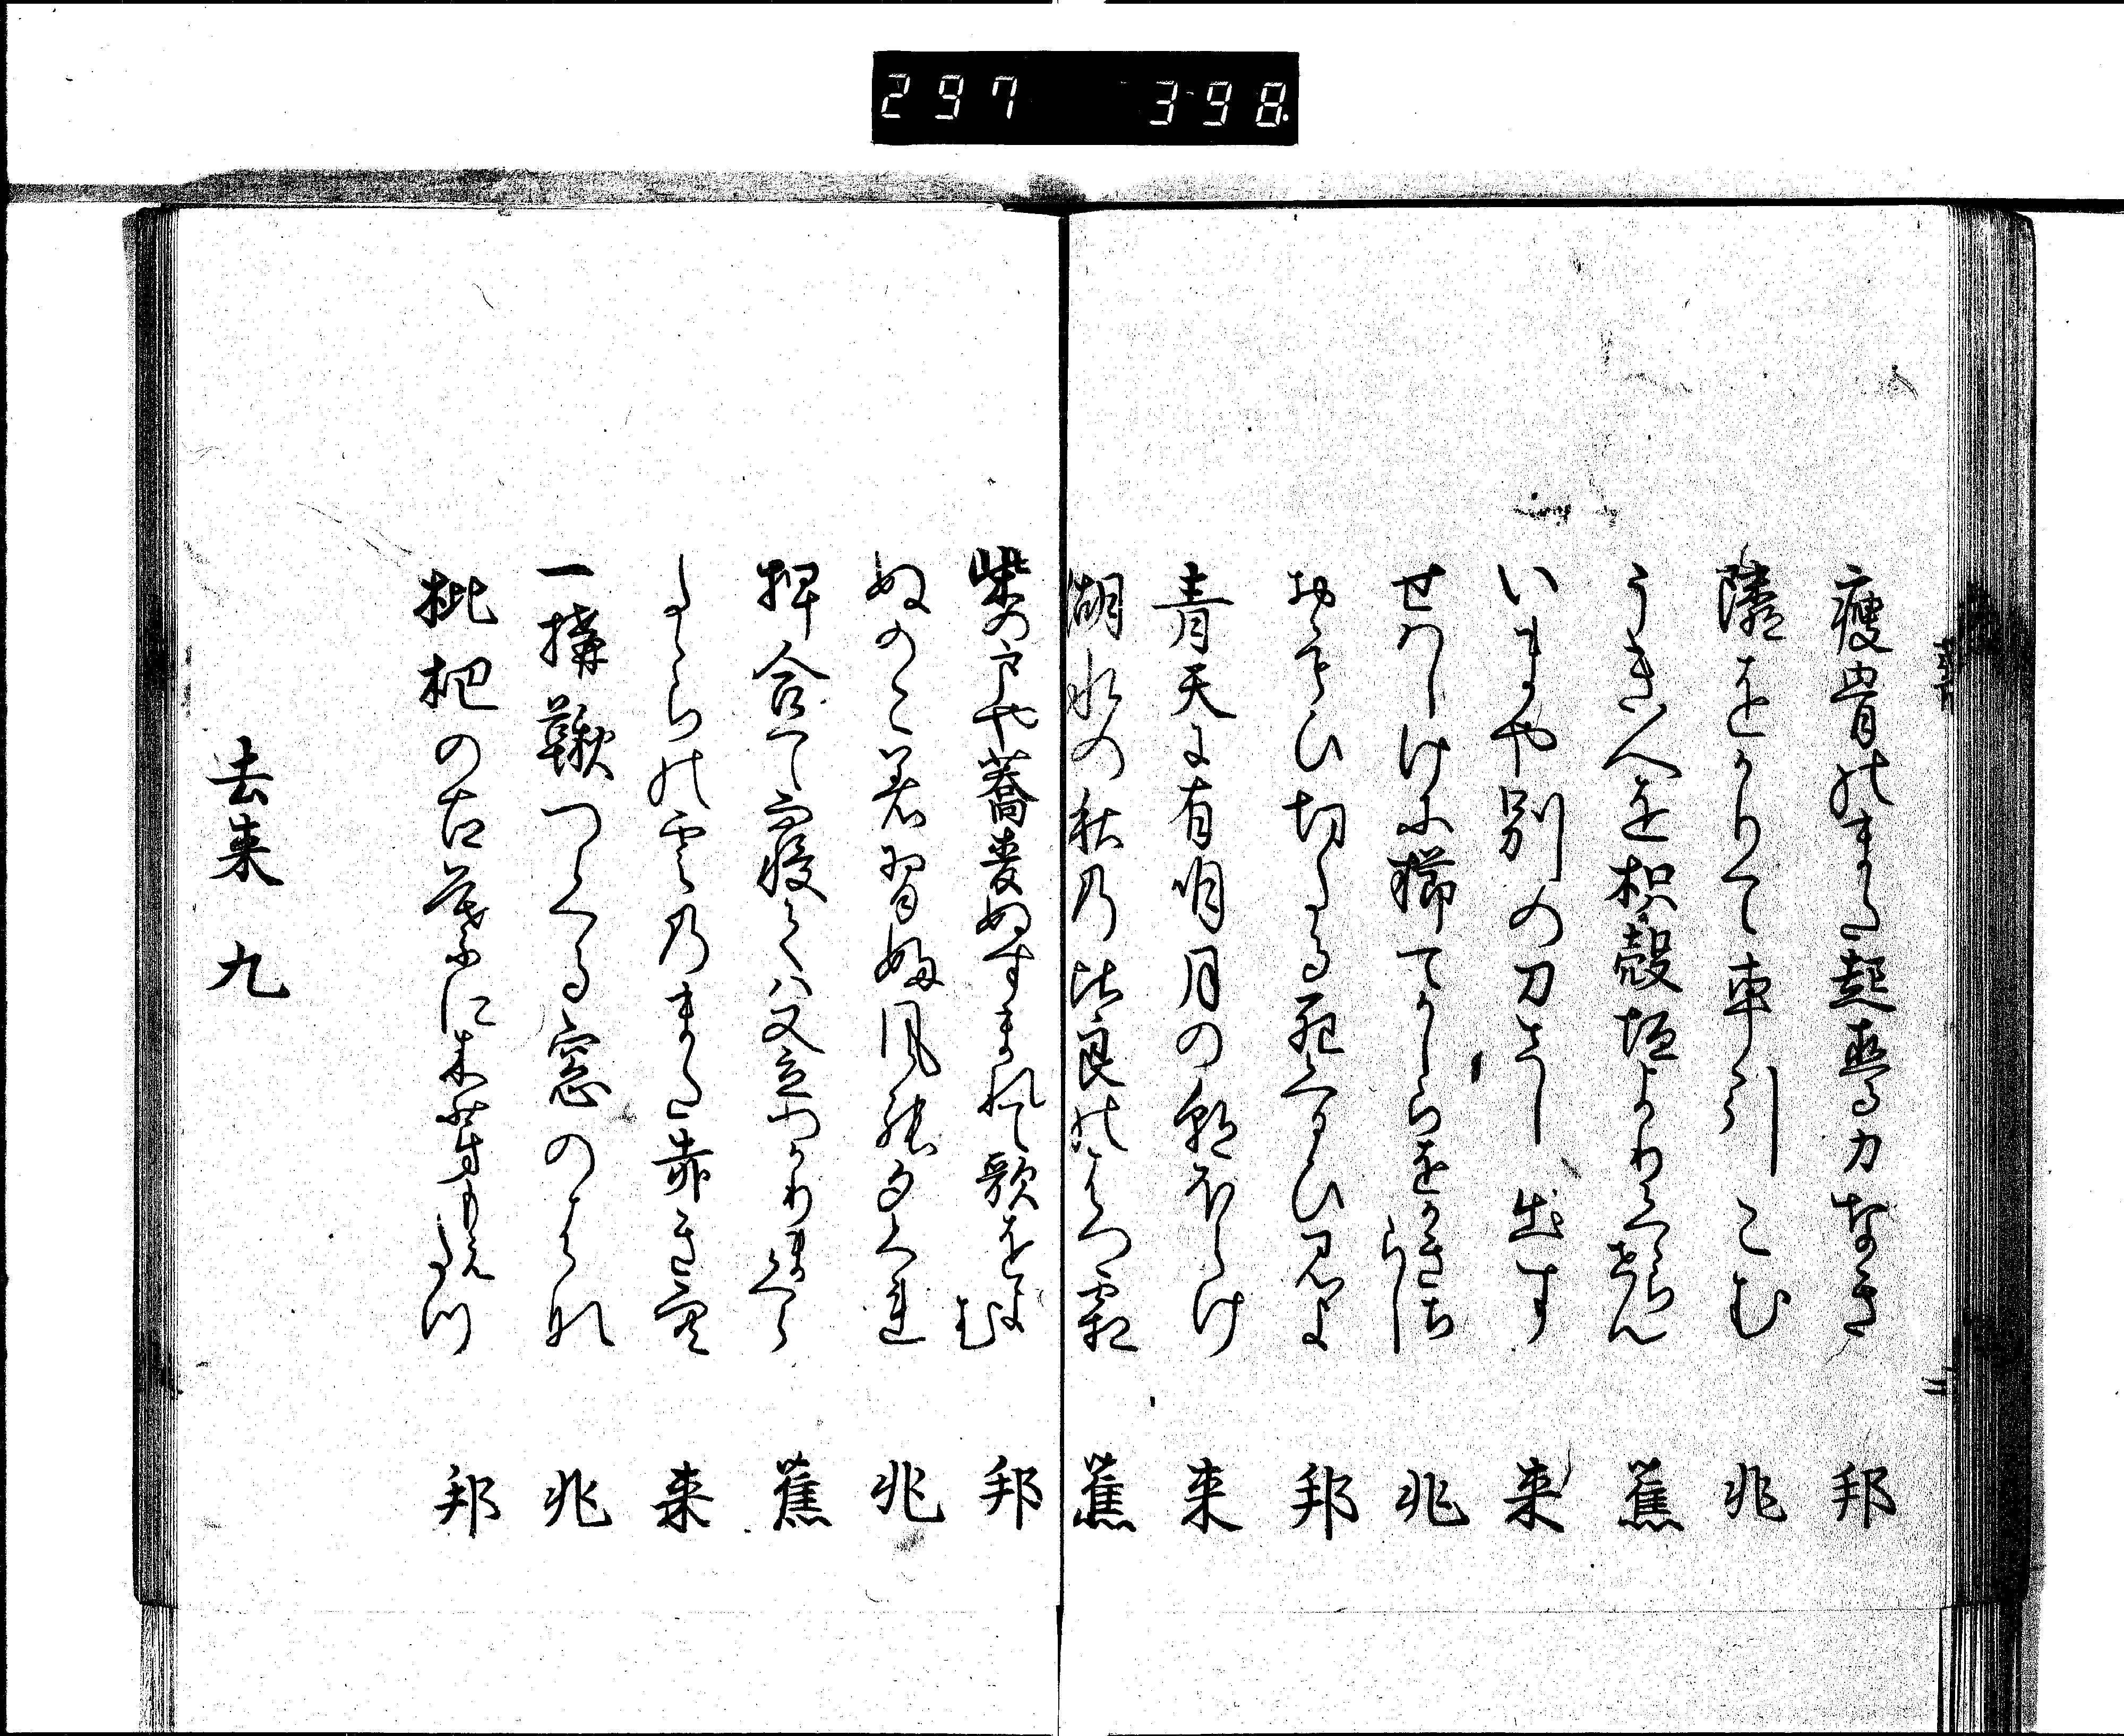 297 398
痩骨のまた起直る力なき 邦
隣をかりて車引こむ 兆
うき人を枳殻垣よりくゝらせん 蕉
いまや別の刀さし出す 来
せはしけに櫛てかしらをかきちらし 兆
おもひ切たる死くるひ見よ 邦
青天に有明月の朝ほらけ 来
湖水の秋の比良のはつ霜 蕉
柴の戸や蕎麦ぬすまれて歌をよむ 邦
ぬのこ着習ふ風の夕くれ 兆
押合て寝ては又立つかりまくら 蕉
たゝらの雲のまた赤き空 来
一構鞦つくる窓のはな 兆
枇杷の古葉に木芽もえたつ 邦
去来 九